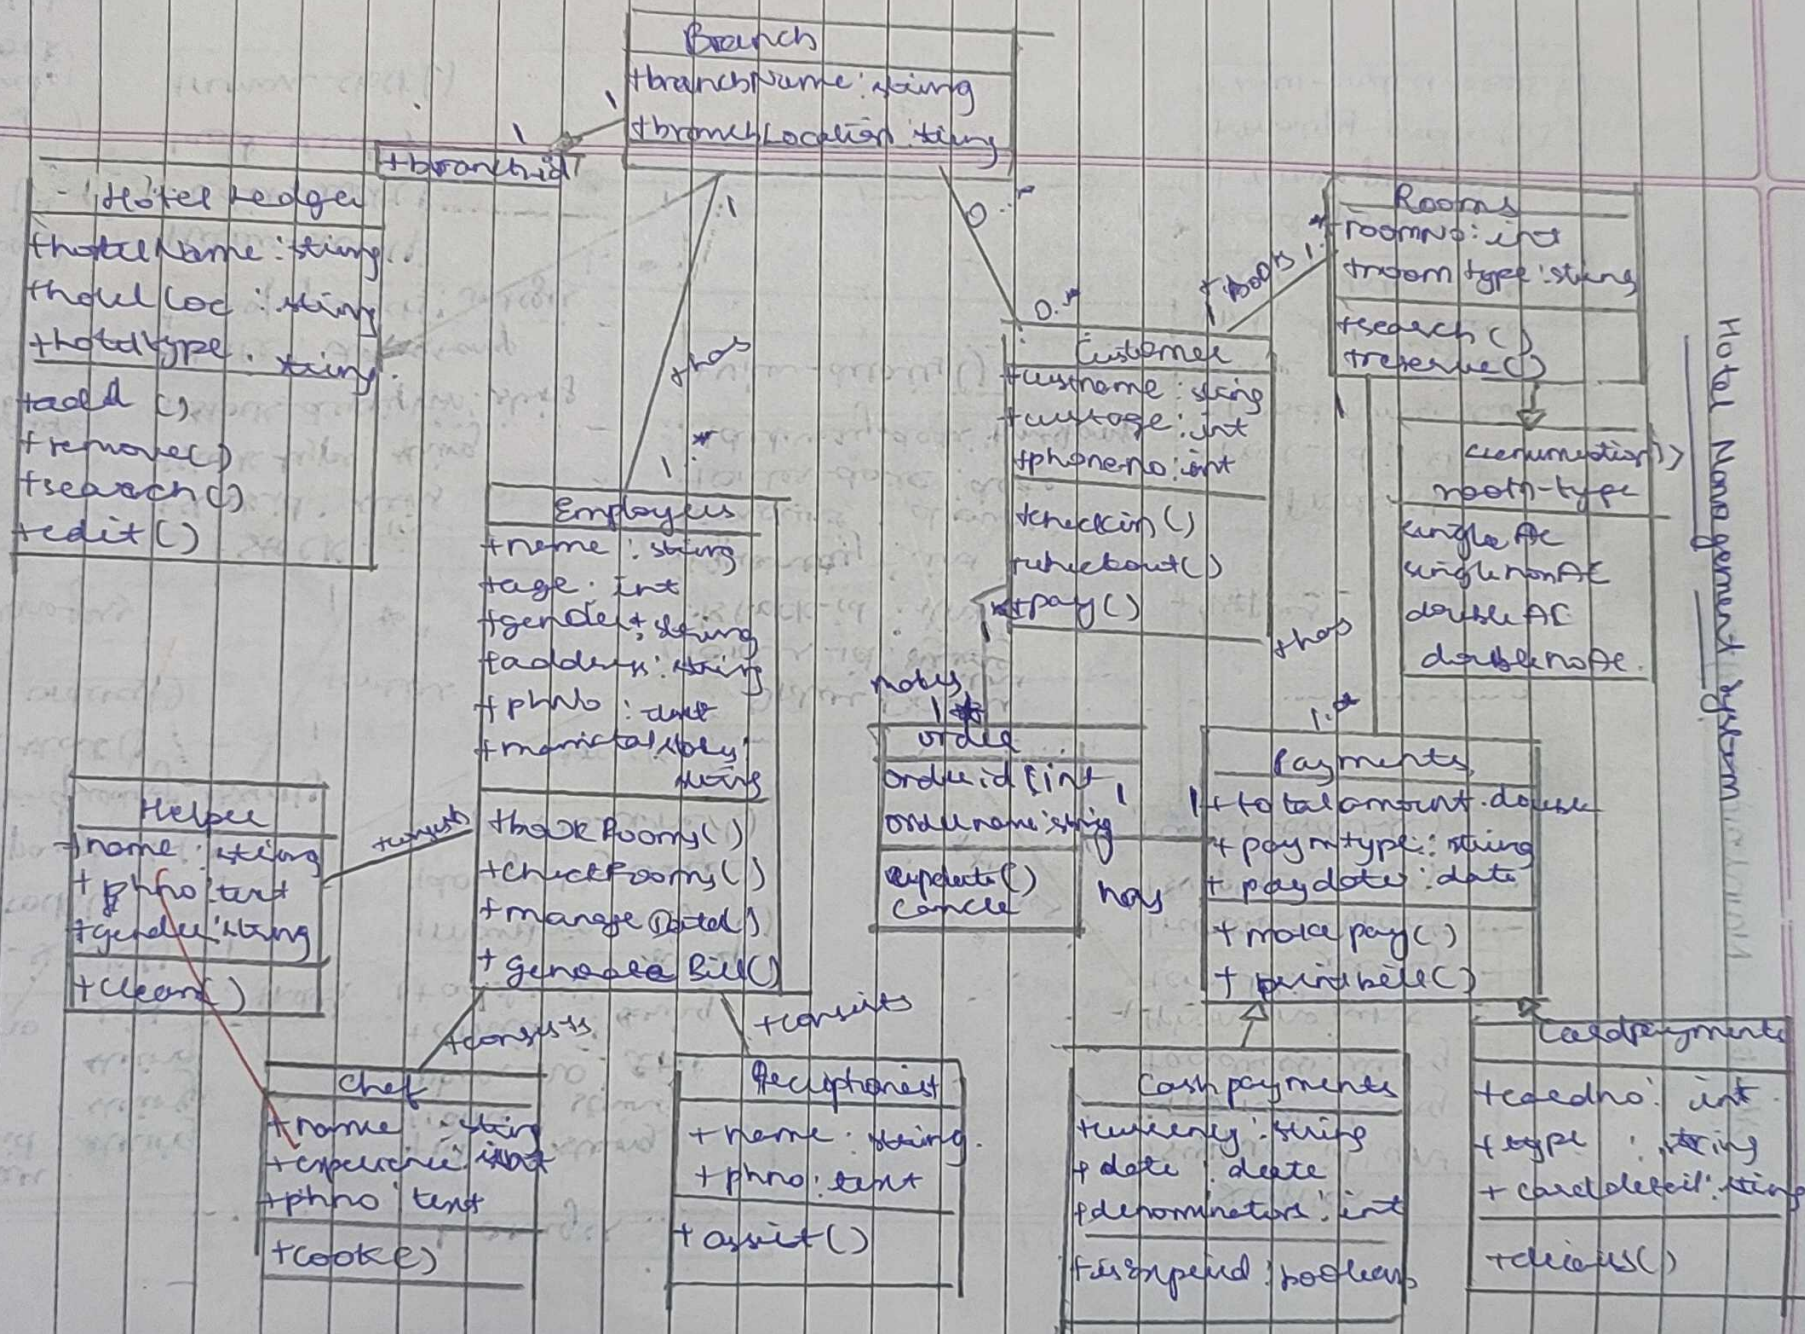 Hotel Management System
Branch
+branchName: string
+branchLocation: string
1
1
+branchid
Hotel Ledger
+hotelName: string
+hotel Loc: string
+hoteltype: string
+add ()
+remove()
+search()
+edit()
1
+has
1..*
0..*
0..*
Rooms
+roomNo: int
+room type: string
+search()
+reserve()
Books
1..*
Customer
+custname: string
+custage: int
+phoneno: int
+checkin()
+checkout()
+pay()
room-type
single AC
single nonAC
double AC
1
+has
1..*
Employees
+name: string
+age: int
+gender: string
+address: string
+phNo: text
string
+book Rooms()
+checkRooms()
+manage
+
Bill()
1
order
orderid: int
ordername: string
update()
cancle
1
1
has
Payments
+totalamount: double
+paymtype: string
+paydate: date
+make pay()
+printbill()
Helper
+name: string
+phno: text
+gender: string
+clean()
+consists
+consists
+consists
Chef
+name: string
+experience:
+phno: text
+cook()
Receptionist
+name: string
+phno: text
+assist()
Cashpayments
+currency: string
+date: date
+denominators: int
Cardpayments
+cardno: int
+type: string
+carddetail: string